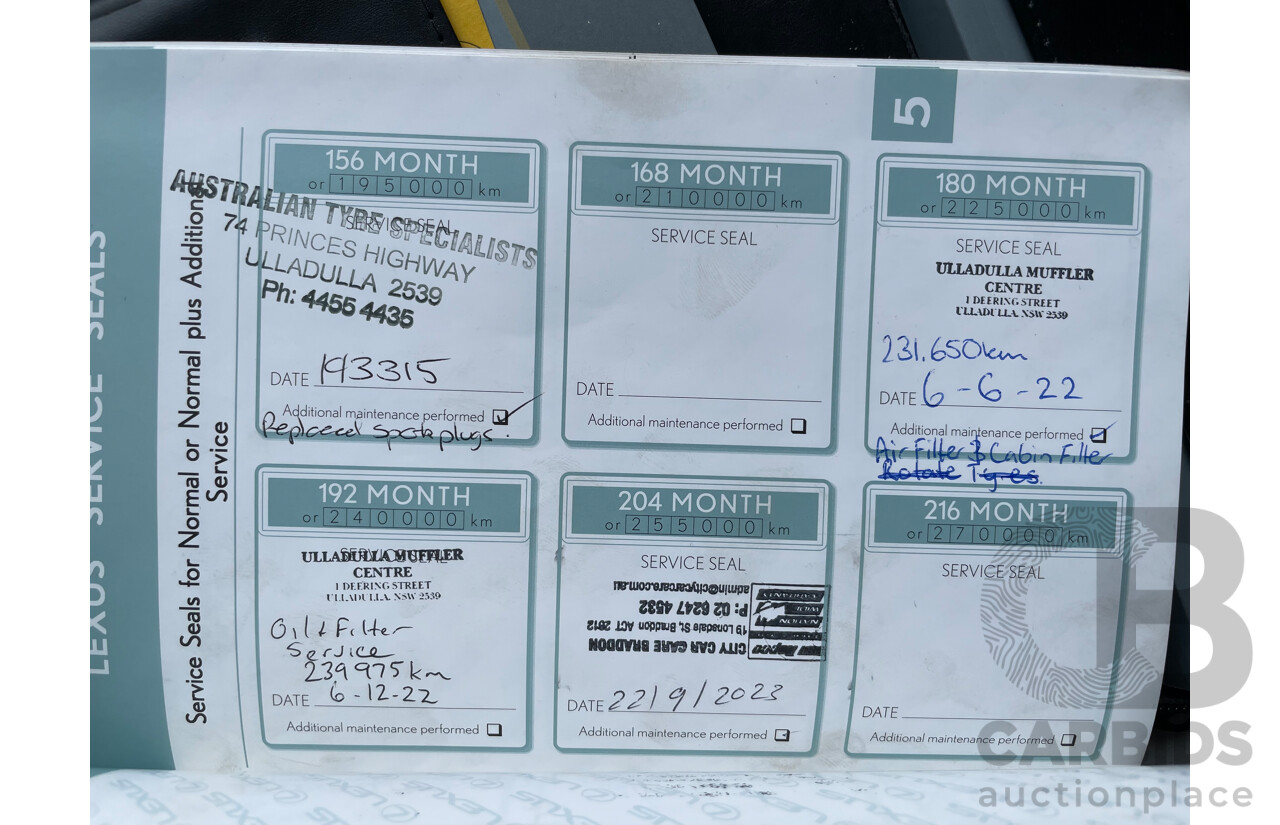 LEXUS SERVICE SEALS
Service Seals for Normal or Normal plus Additional
Service
5
156 MONTH
or 195000 km
SERVICE SEAL
AUSTRALIAN TYRE SPECIALISTS
74 PRINCES HIGHWAY
ULLADULLA 2539
Ph: 4455 4435
DATE 193315
Additional maintenance performed
Replaced Spark plugs.
168 MONTH
or 210000 km
SERVICE SEAL
DATE
Additional maintenance performed
180 MONTH
or 225000 km
SERVICE SEAL
ULLADULLA MUFFLER
CENTRE
1 DEERING STREET
ULLADULLA. NSW 2539
231.650km
DATE 6-6-22
Additional maintenance performed
Air Filter & Cabin Filter
Rotate Tyres.
192 MONTH
or 240000 km
SERVICE SEAL
ULLADULLA MUFFLER
CENTRE
1 DEERING STREET
ULLADULLA. NSW 2539
Oil & Filter
Service
239975km
DATE 6-12-22
Additional maintenance performed
204 MONTH
or 255000 km
SERVICE SEAL
CITY CAR CARE BRADDON
19 Lonsdale St, Braddon ACT 2612
P: 02 6247 4532
admin@citycarcare.com.au
DATE 22/9/2023
Additional maintenance performed
216 MONTH
or 270000 km
SERVICE SEAL
DATE
Additional maintenance performed
CB
CARBIDS
auctionplace
LEXUS LEXUS LEXUS LEXUS